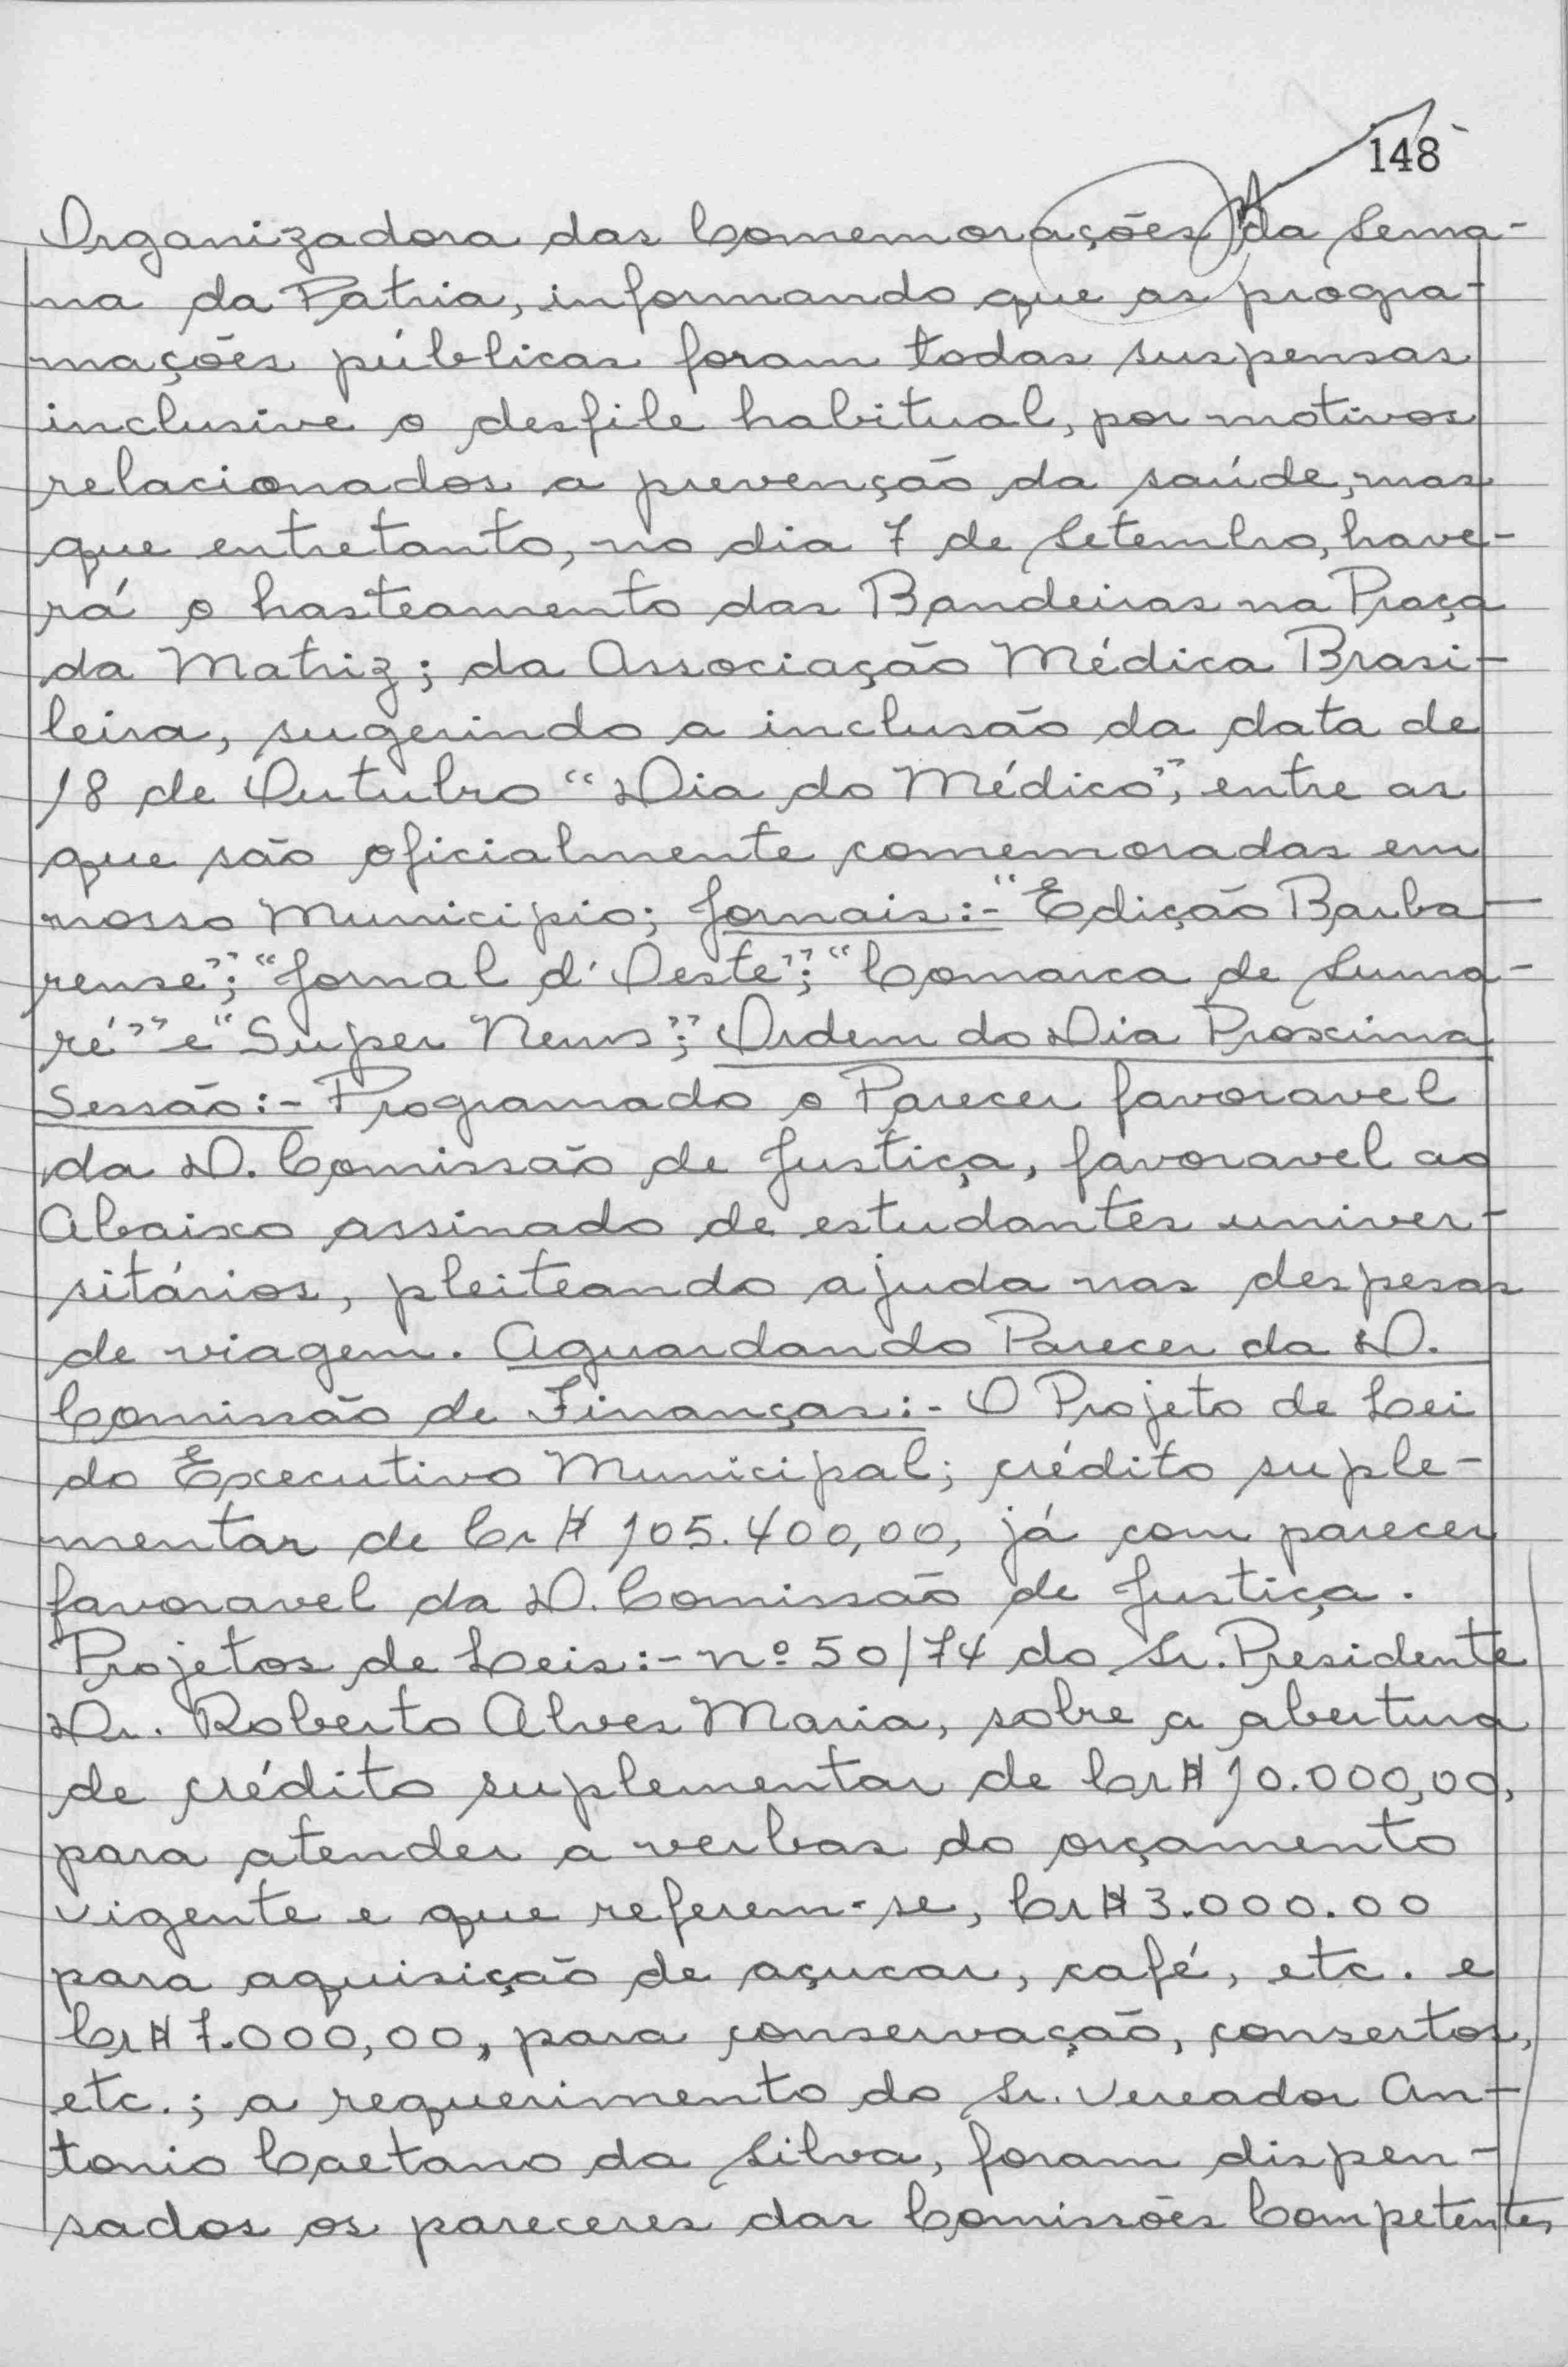 148
Organizadora das Comemorações da Sema-
na da Patria, informando que as progra-
mações públicas foram todas suspensas
inclusive o desfile habitual, por motivos
relacionados a prevenção da saúde, mas
que entretanto, no dia 7 de Setembro, have-
rá o hasteamento das Bandeiras na Praça
da Matriz; da Associação Médica Brasi-
leira, sugerindo a inclusão da data de
18 de Outubro "Dia do Médico", entre as
que são oficialmente comemoradas em
nosso Municipio; Jornais:- "Edição Barba-
rense"; "Jornal d'Oeste"; "Comarca de Suma-
ré" e "Super News"; Ordem do Dia Proxima
Sessão:- Programado o Parecer favoravel
da D. Comissão de Justiça, favoravel ao
Abaixo assinado de estudantes univer-
sitários, pleiteando ajuda nas despesas
de viagem. Aguardando Parecer da D.
Comissão de Finanças:- O Projeto de Lei
do Executivo Municipal; crédito suple-
mentar de Cr$ 105.400,00, já com parecer
favoravel da D. Comissão de Justiça.
Projetos de Leis:- nº 50/74 do Sr. Presidente
Dr. Roberto Alves Maria, sobre a abertura
de crédito suplementar de Cr$ 10.000,00,
para atender a verbas do orçamento
vigente e que referem-se, Cr$ 3.000.00
para aquisição de açucar, café, etc. e
Cr$ 7.000,00, para conservação, consertos,
etc.; a requerimento do Sr. Vereador An-
tonio Caetano da Silva, foram dispen-
sados os pareceres das Comissões Competentes